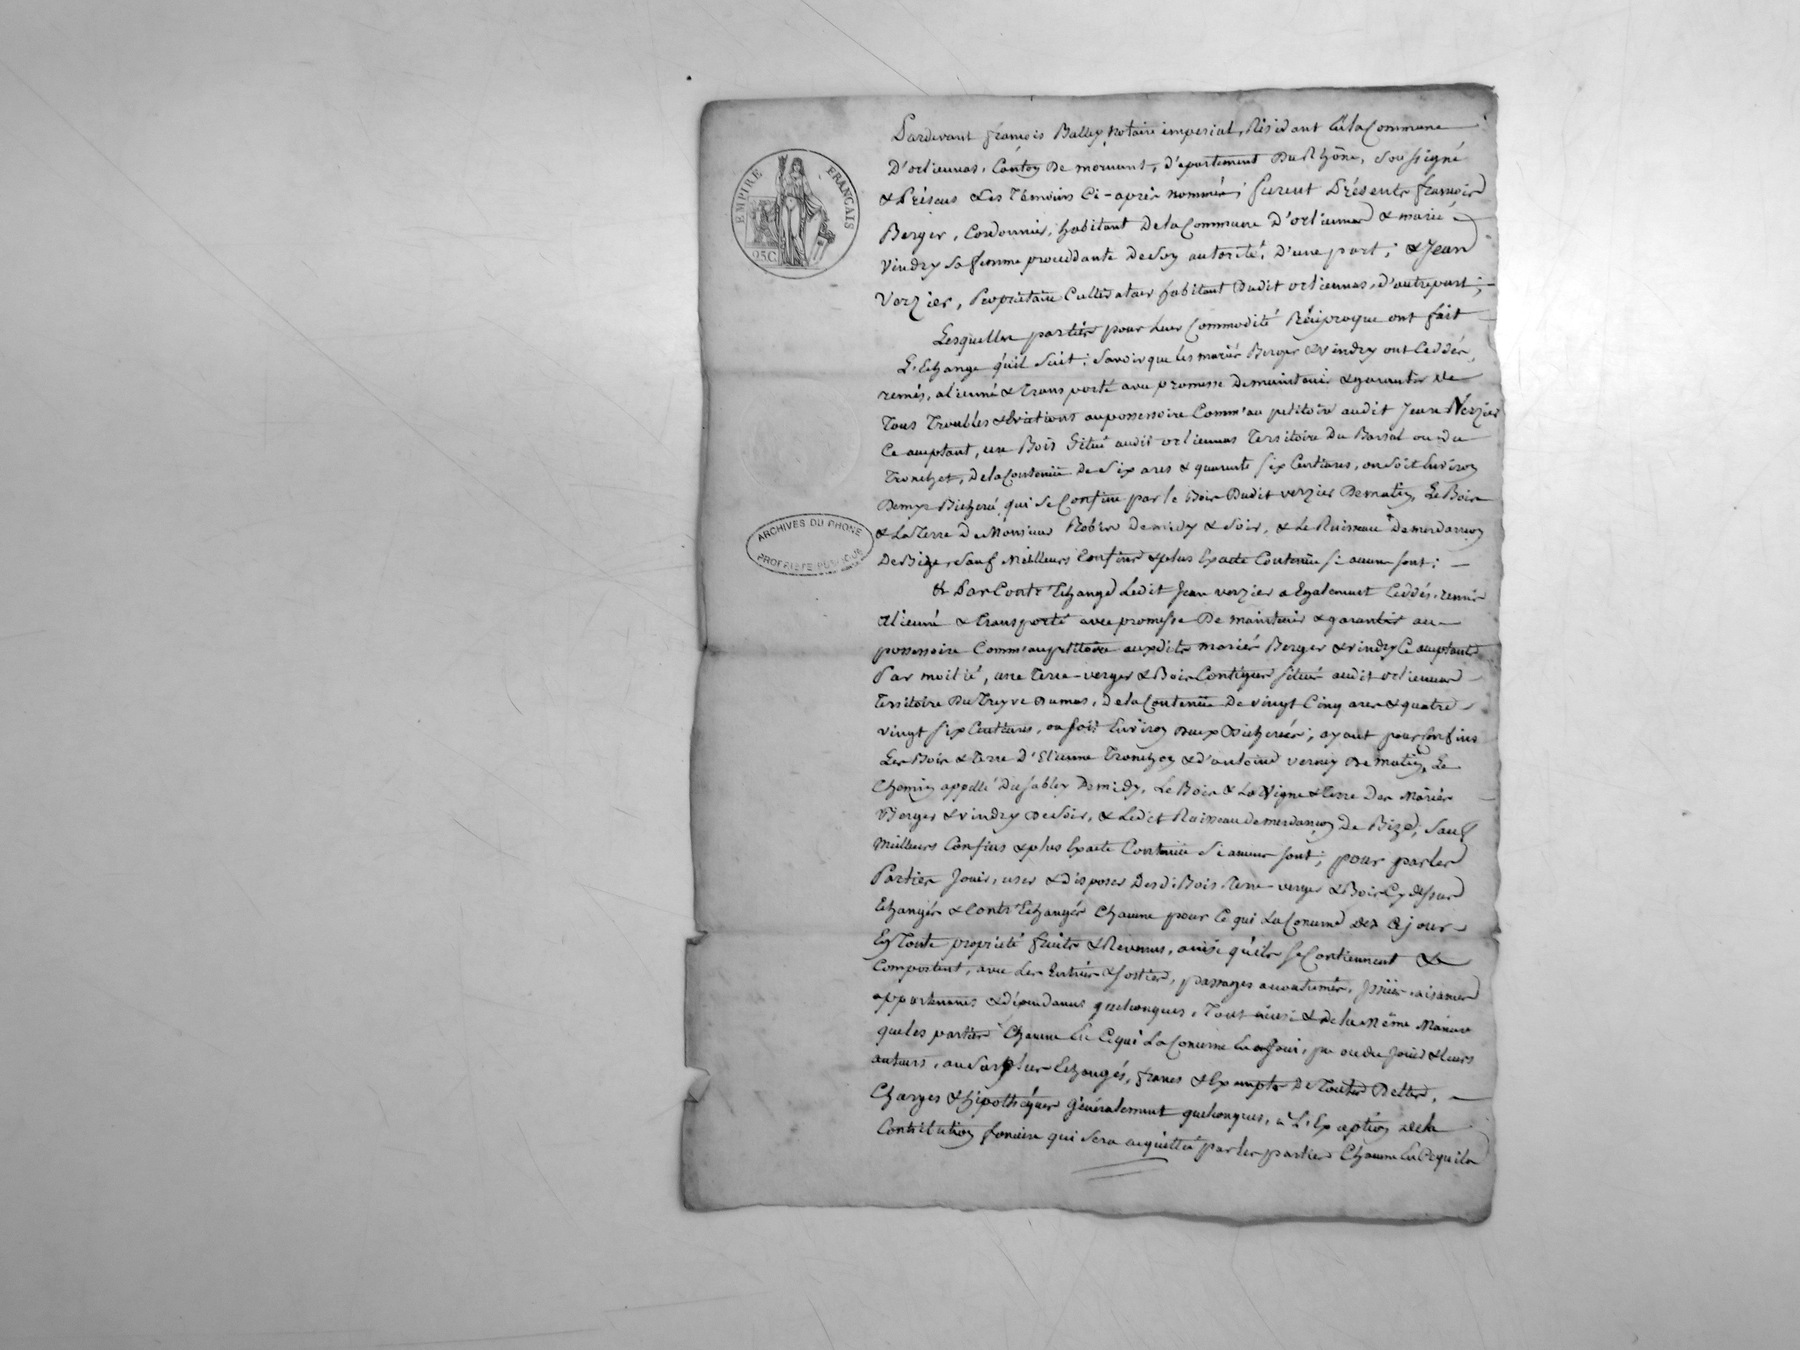 EMPIRE FRANÇAIS
25C
ARCHIVES DU RHONE
PROPRIÉTÉ PUBLIQUE
Pardevant françois Balley Notaire imperial, Résidant En la Commune
D'orlienas, Canton De mornant, D'epartement Du Rhône, soussigné
& Présens Les Témoins Ci-après nommés; furent Présents françois
Berger, Cordonnier, habitant De la Commune D'orlienas & marie
Vindry sa femme procédante De Son autorité, D'une part; & Jean
Verzier, Propriétaire Cultivateur habitant Dudit orlienas, D'autre part;
Lesquelles parties pour Leur Commodité Réciproque ont fait
L'Echange qu'il Suit; Savoir que les mariés Berger & vindry ont Ceddés,
remis, aliénné & Transporté avec promesse De maintenir & garantir De
Tous Troubles & Evictions au possessoire Comm'au petitoire audit Jean Verzier
Ce aceptant, un Bois Situé audit orlienas Territoire Du Barral ou du
Tronchet, De la Contenüe De Six ares & quarante six Centiares, ou Soit Environ
Demye Bicherée, qui Se Confine par le Bois Dudit verzier De matin, Le Bois
& La Terre De Monsieur Robin De midy & Soir, & Le Ruisseau De merdanson
De Bize, Sauf Meilleurs Confins & plus Exacte Contenüe Si aucuns sont;
& Par Contr'Echange Ledit Jean verzier a Egalement Ceddés, remis
Aliénné & Transporté avec promesse De maintenir & garantir au
possessoire Comm'au petitoire auxdits mariés Berger & vindry Ce aceptants
Par moitié, une Terre-verger & Bois Contigus situés audit orlienas
Territoire Du Treyve Dumas, De la Contenüe De vingt Cinq ares & quatre
vingt six Centiares, ou soit Environ Deux Bicherées; ayant pour Confins
Les Bois & Terre D'Etienne Tronchon & D'antoine verney De Matin, Le
Chemin appellé Du sabley De midy, Le Bois & La Vigne & Terre Des Mariés
Berger & vindry De Soir, & Ledit Ruisseau De merdanson De Bize; Sauf
Meilleurs Confins & plus Exacte Contenüe Si aucuns sont; pour par les
Parties Jouir, user & disposer Desd. Bois Terre-verger & Bois Cy dessus
Echangés & Contr'Echangés Chacune pour Ce qui La Concerne Dez Ce jour
En Toute propriété fruits & Revenus, ainsi qu'ils Se Contiennent &
Comportent, avec Les Entrées & sorties, passages accoutumés, Issües, aisances
appartenances & dépendances quelconques, Tout ainsi & De la Même Manière
que les parties Chacune En Ce qui La Concerne En ont Joui, pu ou du Jouir & Leurs
auteurs, au Surplus Echangés, francs & Exempts De Toutes Dettes,
Charges & hipothéques Généralement quelconques, à L'Exception De la
Contribution fonciere qui Sera acquittée par les parties Chacune En Ce qui La